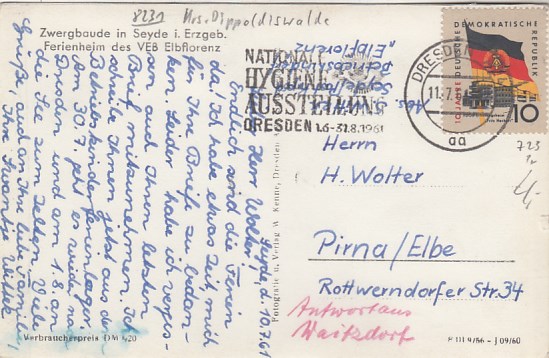 8231 Krs. Dippoldiswalde
Zwergbaude in Seyde i. Erzgeb.
Ferienheim des VEB Elbflorenz
Seyde, d. 10.7.61
Herr Wolter!
Endlich sind die Ferien
da! Ich habe etwas Zeit, mich
für Ihre Briefe zu bedan-
ken. Leider habe ich verges-
sen auch Ihren letzten
Brief mitzunehmen. Ich
schreibe Ihnen jetzt aus dem
Betriebskinderferienlager.
Ab 30.7. geht es wieder
und am 1.8. an
die See zum Zelten. Viele
Grüße auch an Ihre liebe Familie,
Ihr
Verbraucherpreis DM 0,20
Fotografie u. Verlag W. Kenne, Dresden
NATIONALE
HYGIENE
AUSSTELLUNG
DRESDEN 1.6-31.8.1961
Abs.:
"Elbflorenz"
DRESDEN
11.7.61
aa
DEUTSCHE DEMOKRATISCHE REPUBLIK
10 JAHRE
10
Herrn
H. Wolter
Pirna/Elbe
Rottwerndorfer Str. 34
Antwort aus
Waitzdorf
723
III 9/56 - J 09/60